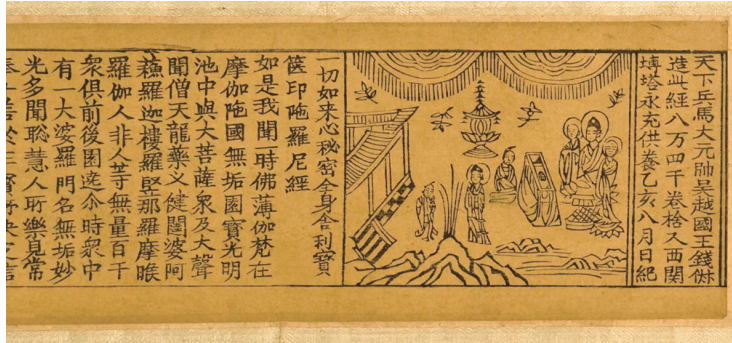 天下兵馬大元帥吳越國王錢俶
造此經八万四千卷捨入西關
塼塔永充供養乙亥八月日紀
一切如來心秘密全身舍利寶
篋印陀羅尼經
如是我聞一時佛薄伽梵在
摩伽陀國無垢園寶光明
池中與大菩薩衆及大聲
聞僧天龍藥叉健闥婆阿
蘇羅迦樓羅緊那羅摩睺
羅伽人非人等無量百千
衆俱前後圍遶尒時衆中
有一大婆羅門名無垢妙
光多聞聰慧人所樂見常